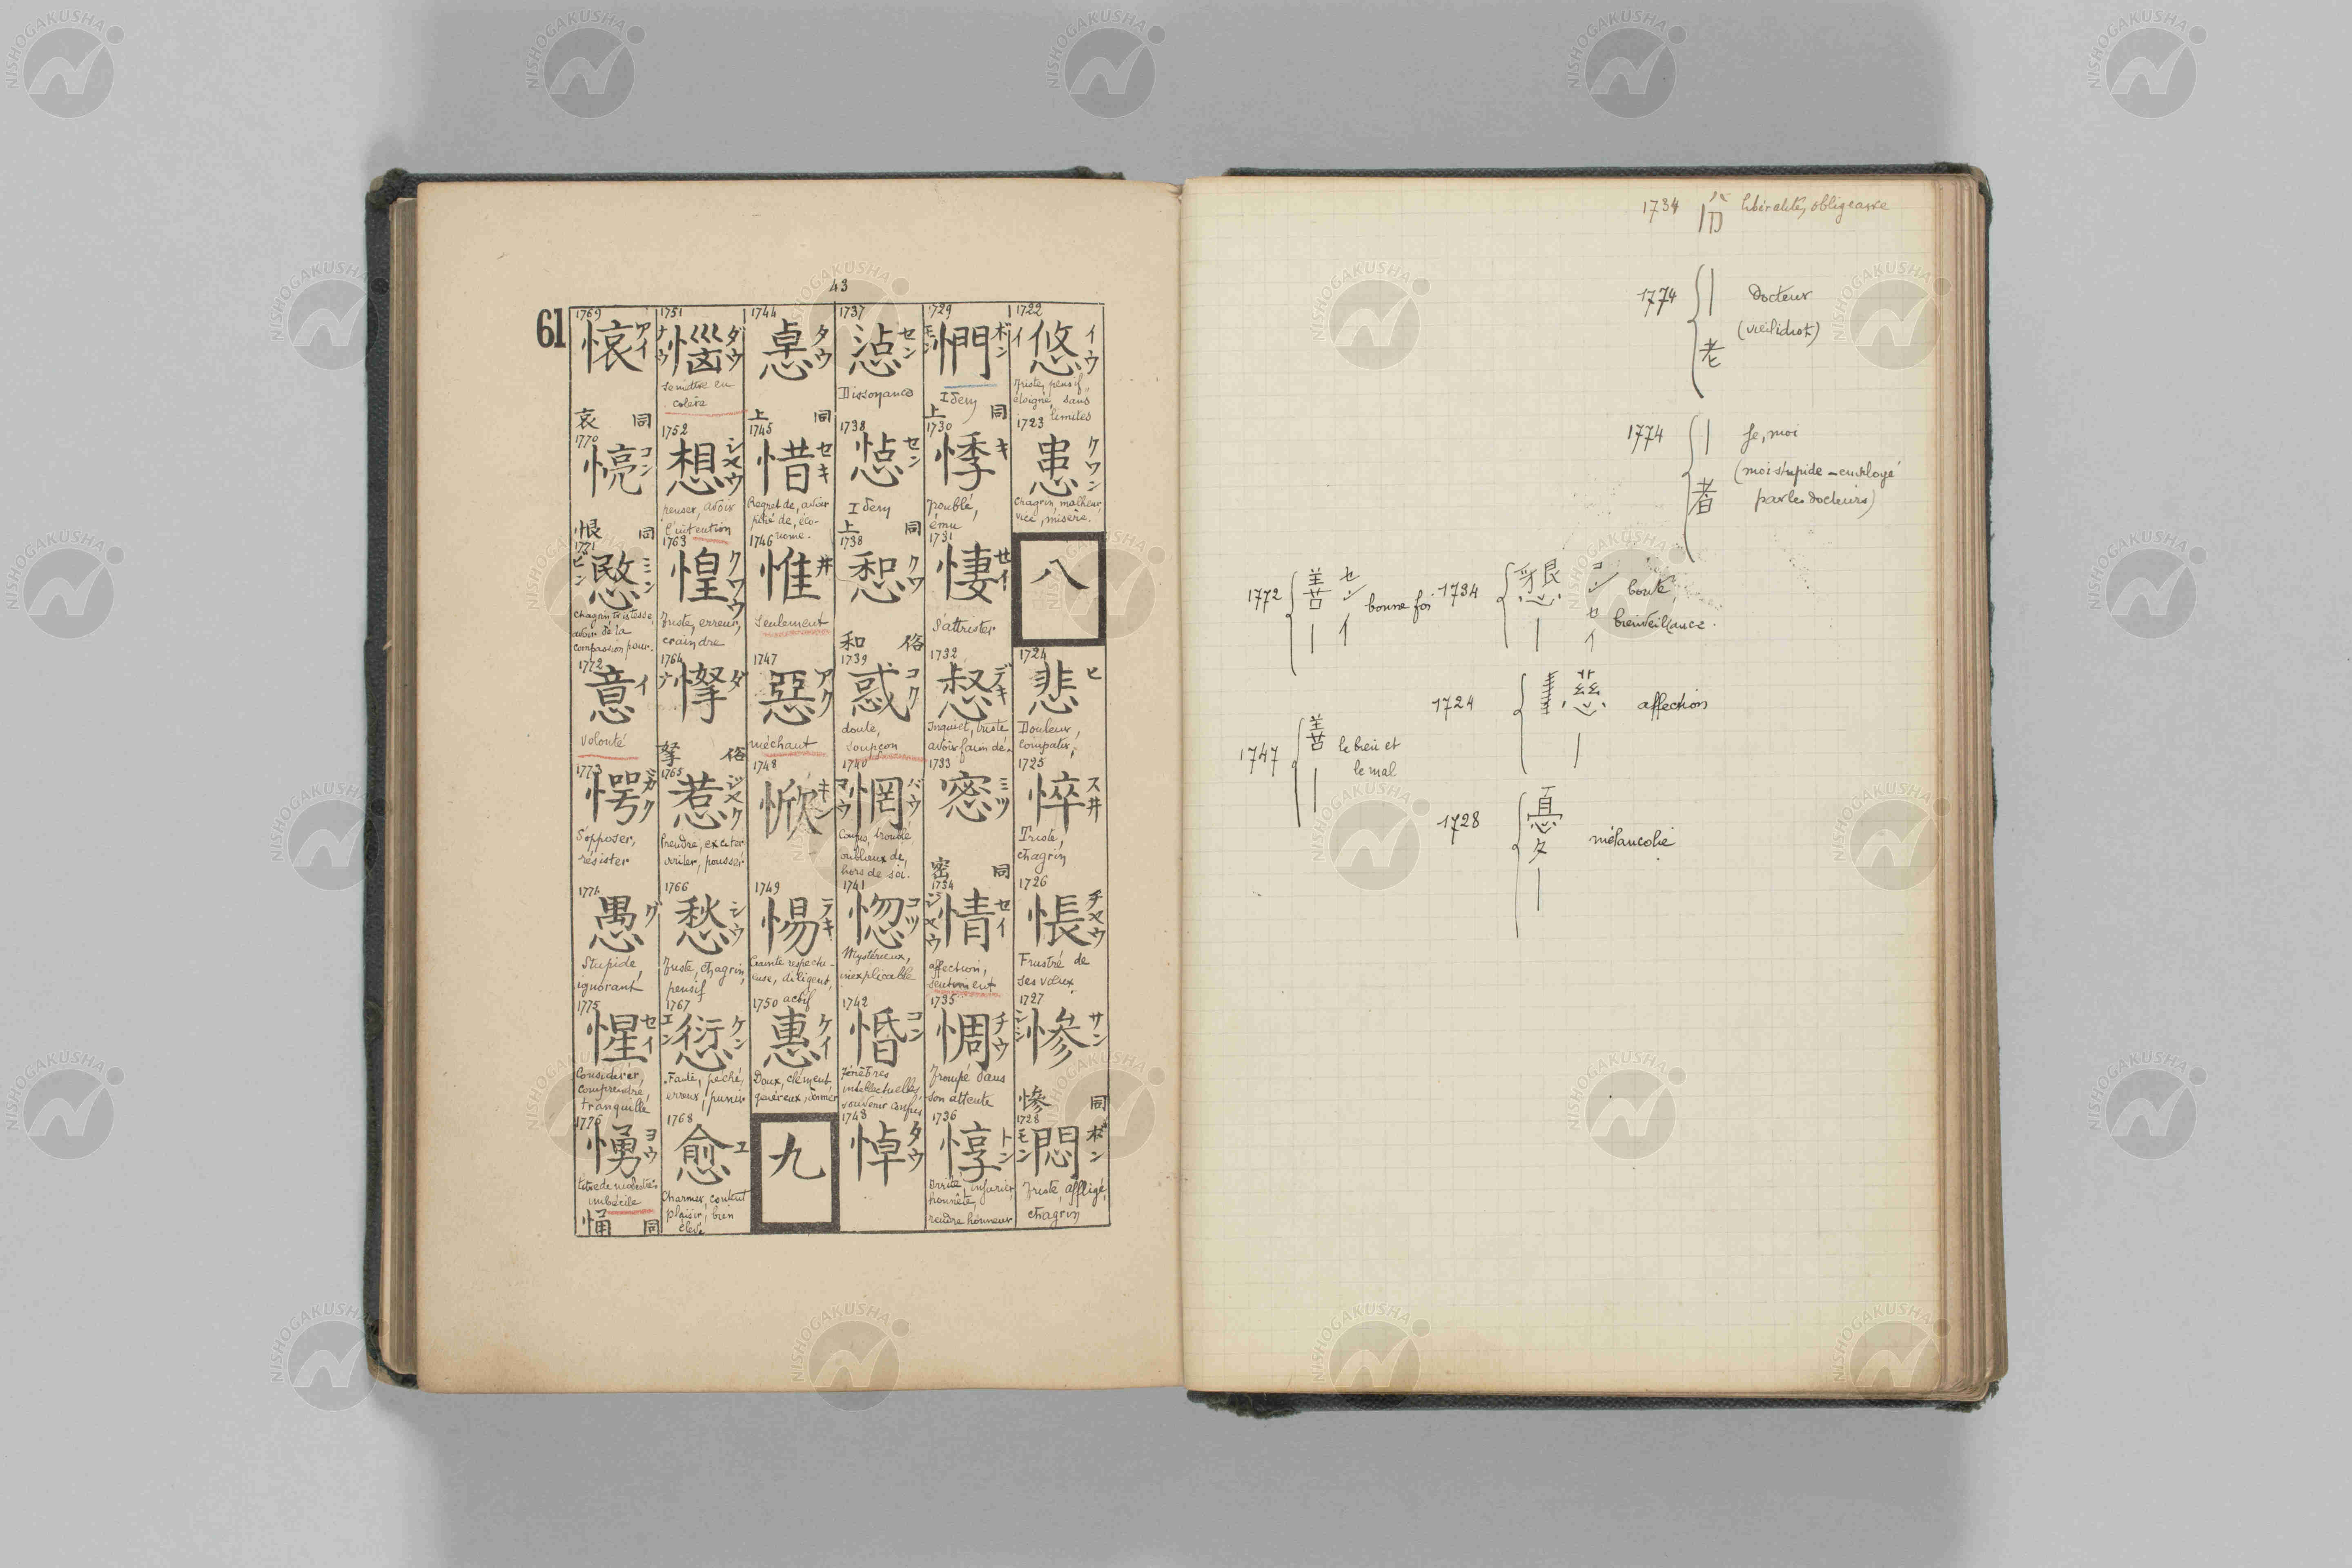 43
61
1722
悠 イウ イ
Triste, pensif,
éloigné, sans
limites
1723
患 クワン
chagrin, malheur,
vice, misère.
八
1724
悲 ヒ
Douleur,
compatir,
1725
悴 スヰ
Triste,
chagrin
1726
悵 チヤウ
Frustré de
ses vœux
1727
惨 サン シン
惨 同
1728
悶 ボン モン
Triste, affligé,
chagrin
1729
惘 ボン モン
Idem
上 同
1730
悸 キ
Troublé,
ému
1731
悽 セイ
S'attrister
1732
惄 デキ
Inquiet, triste
avoir faim de
1733
密 ミツ
密 同
1734
情 セイ ジヤウ
affection,
sentiment
1735
惆 チウ
Trompé dans
son attente
1736
惇 トン
honnête,
rendre honneur
1737
惉 セン
Dissonance
1738
惉 セン
Idem
上 同
1738
惒 クワ
和 俗
1739
惑 コク
doute,
soupçon
1740
惘 バウ マウ
Confus, troublé,
oublieux de,
hors de soi.
1741
惚 コツ
Mystérieux,
inexplicable
1742
惛 コン
Ténèbres
intellectuelles,
souvenir confus
1743
悼 タウ
1744
悳 タウ
上 同
1745
惜 セキ
Regret de, avoir
pitié de, éco-
nome.
1746
惟 ヰ
Seulement
1747
惡 アク
méchant
1748
惞 キン
1749
惕 テキ
Crainte respectu-
euse, diligent,
actif
1750
惠 ケイ
Doux, clément
généreux, donner
九
1751
惱 ダウ ナウ
Se mettre en
colère
1752
想 シヤウ
penser, avoir
l'intention
1763
惶 クワウ
Triste, erreur,
craindre
1764
拏 ダ ナ
拏 俗
1765
惹 ジヤク
Prendre, exciter
irriter, pousser
1766
愁 シウ
Triste, chagrin,
pensif
1767
愆 ケン エン
Faute, péché,
erreur, punir
1768
愈 ユ
Charmer, content
plaisir, bien
élevé
1769
哀 アイ
哀 同
1770
コン
恨 同
1771
愍 ミン ビン
chagrin, tristesse,
avoir de la
compassion pour.
1772
意 イ
volonté
1773
愕 ガク
S'opposer,
résister
1774
愚 グ
Stupide,
ignorant
1775
惺 セイ
Considérer,
comprendre,
tranquille
1776
愑 ヨウ
imbécile
悀 同
1734 libéralité, obligeance
1774 | 老 Docteur
(vieil idiot)
1774 | 者 Je, moi
(moi stupide - employé
par les docteurs)
1772 善 | セン イ bonne foi
1734 懇 | コン セイ bonté,
bienveillance.
1724 慈 | affection
1747 善 | le bien et
le mal
1728 憂 | mélancolie